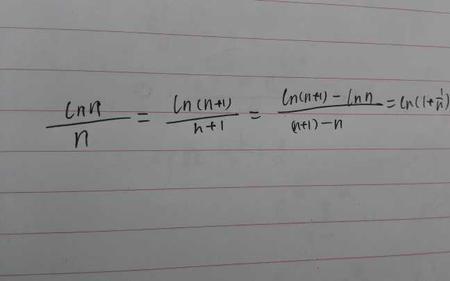 ln n / n = ln(n+1) / n+1 = ln(n+1) - ln n / (n+1) - n = ln(1 + 1/n)